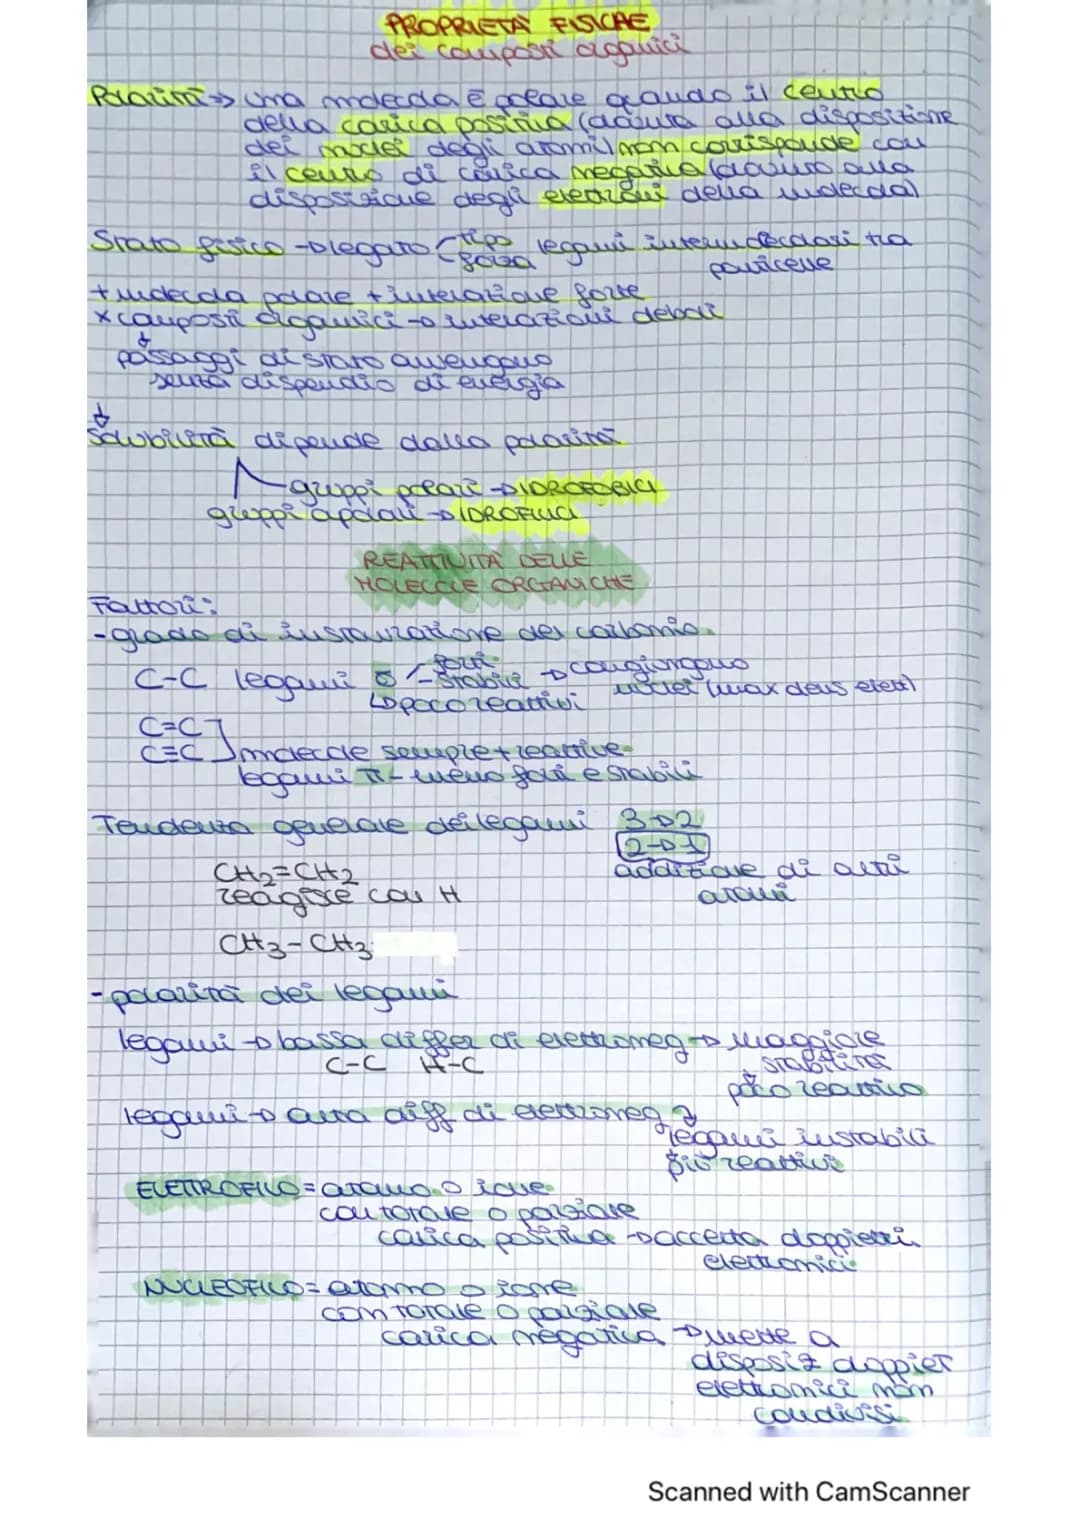 PROPRIETÀ FISICHE
dei composti organici
Polarità → una molecola è polare quando il centro
della carica positiva (dovuta alla disposizione
dei nuclei degli atomi) non corrisponde con
il centro di carica negativa (dovuto alla
disposizione degli elettroni della molecola)
Stato fisico → legato tipo legami intermolecolari tra
forza particelle
+ molecola polare + interazione forte
x composti organici → interazioni deboli
passaggi di stato avvengono
senza dispendio di energia
Solubilità dipende dalla polarità
gruppi polari → IDROFOBICI
gruppi apolari → IDROFILICI
REATTIVITÀ DELLE
MOLECOLE ORGANICHE
Fattori:
- grado di insaturazione del carbonio
C-C legami σ - forti
- stabili → congiungono
↳ poco reattivi nuclei (max dens elett)
C=C
C≡C molecole sempre + reattive
legami π - meno forti e stabili
Tendenza generale dei legami 3→2
2→1
CH2=CH2 addizione di altri
reagisce con H atomi
CH3-CH3
- polarità dei legami
legami → bassa differ di elettroneg → maggiore
C-C H-C stabilità
poco reattivo
legami → alta diff di elettroneg
legami instabili
più reattivi
ELETTROFILO = atomo o ione
con totale o parziale
carica positiva → accetta doppietti
elettronici
NUCLEOFILO = atomo o ione
con totale o parziale
carica negativa → mette a
disposiz doppiet
elettronici non
condivisi
Scanned with CamScanner